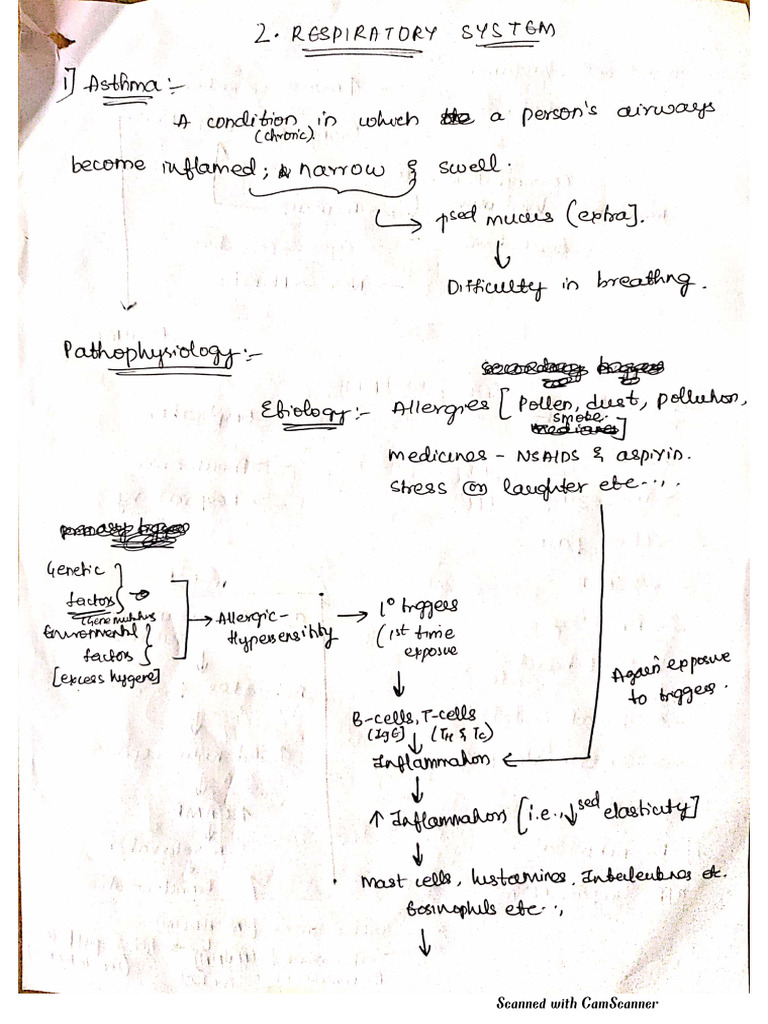 2. RESPIRATORY SYSTEM
1] Asthma :-
A condition in which a person's airways
(chronic).
become inflamed; narrow & swell.
↳ ↑sed mucus (extra].
↓
Difficulty in breathng.
Pathophysiology :-
Etiology :- Allergies [Pollen, dust, pollution,
smoke.]
medicines - NSAIDS & aspirin.
stress or laughter etc....
Genetic
factors
(Gene mutations
Environmental
factors
[excess hygene]
→ Allergic-
Hypersensibility
→ 1° triggers
(1st time
exposure
↓
B-cells, T-cells
(IgE] ↓ (TH & Tc)
Inflammation ←
Again exposure
to triggers.
↓
↑ Inflammation [i.e., ↓sed elasticity]
↓
Mast cells, histamines, Interleukines etc.
Eosinophils etc...,
↓
Scanned with CamScanner